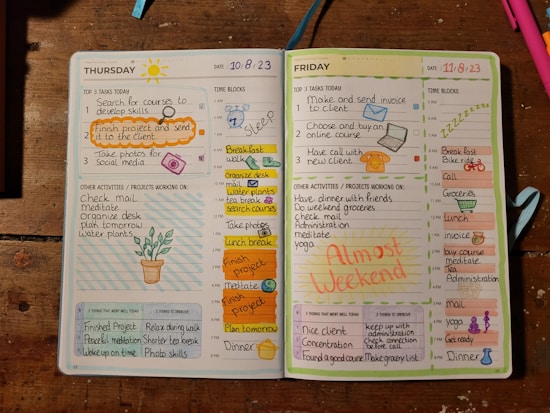 THURSDAY
DATE 10/8/23
TOP 3 TASKS TODAY
1 Search for courses to
develop skills.
2 Finish project and send
it to the client
3 Take photos for
social media
OTHER ACTIVITIES / PROJECTS WORKING ON:
Check mail
Meditate
Organize desk
plan tomorrow
Water plants
3 THINGS THAT WENT WELL TODAY
Finished Project
Peaceful meditation
Woke up on time
3 THINGS TO IMPROVE
Relax during walk
Shorter tea break
Photo skills
TIME BLOCKS
Sleep
Breakfast
walk
Organize desk
mail
Water plants
tea break
search courses
Take photos
Lunch break
Finish
project
Meditate
Finish
project
Plan tomorrow
Dinner
FRIDAY
DATE 11/8/23
TOP 3 TASKS TODAY
1 Make and send invoice
to client
2 Choose and buy an
online course
3 Have call with
new client
OTHER ACTIVITIES / PROJECTS WORKING ON:
Have dinner with friends
Do weekend groceries
check mail
Administration
meditate
yoga
Almost
Weekend
3 THINGS THAT WENT WELL TODAY
Nice client
Concentration
Found a good course
3 THINGS TO IMPROVE
keep up with
administration
check connection
before call
Make grocery list
TIME BLOCKS
zzzzzzzz
Breakfast
Bike ride
Call
Groceries
Lunch
invoice
buy course
meditate
Tea
Administration
Mail
yoga
Get ready
Dinner